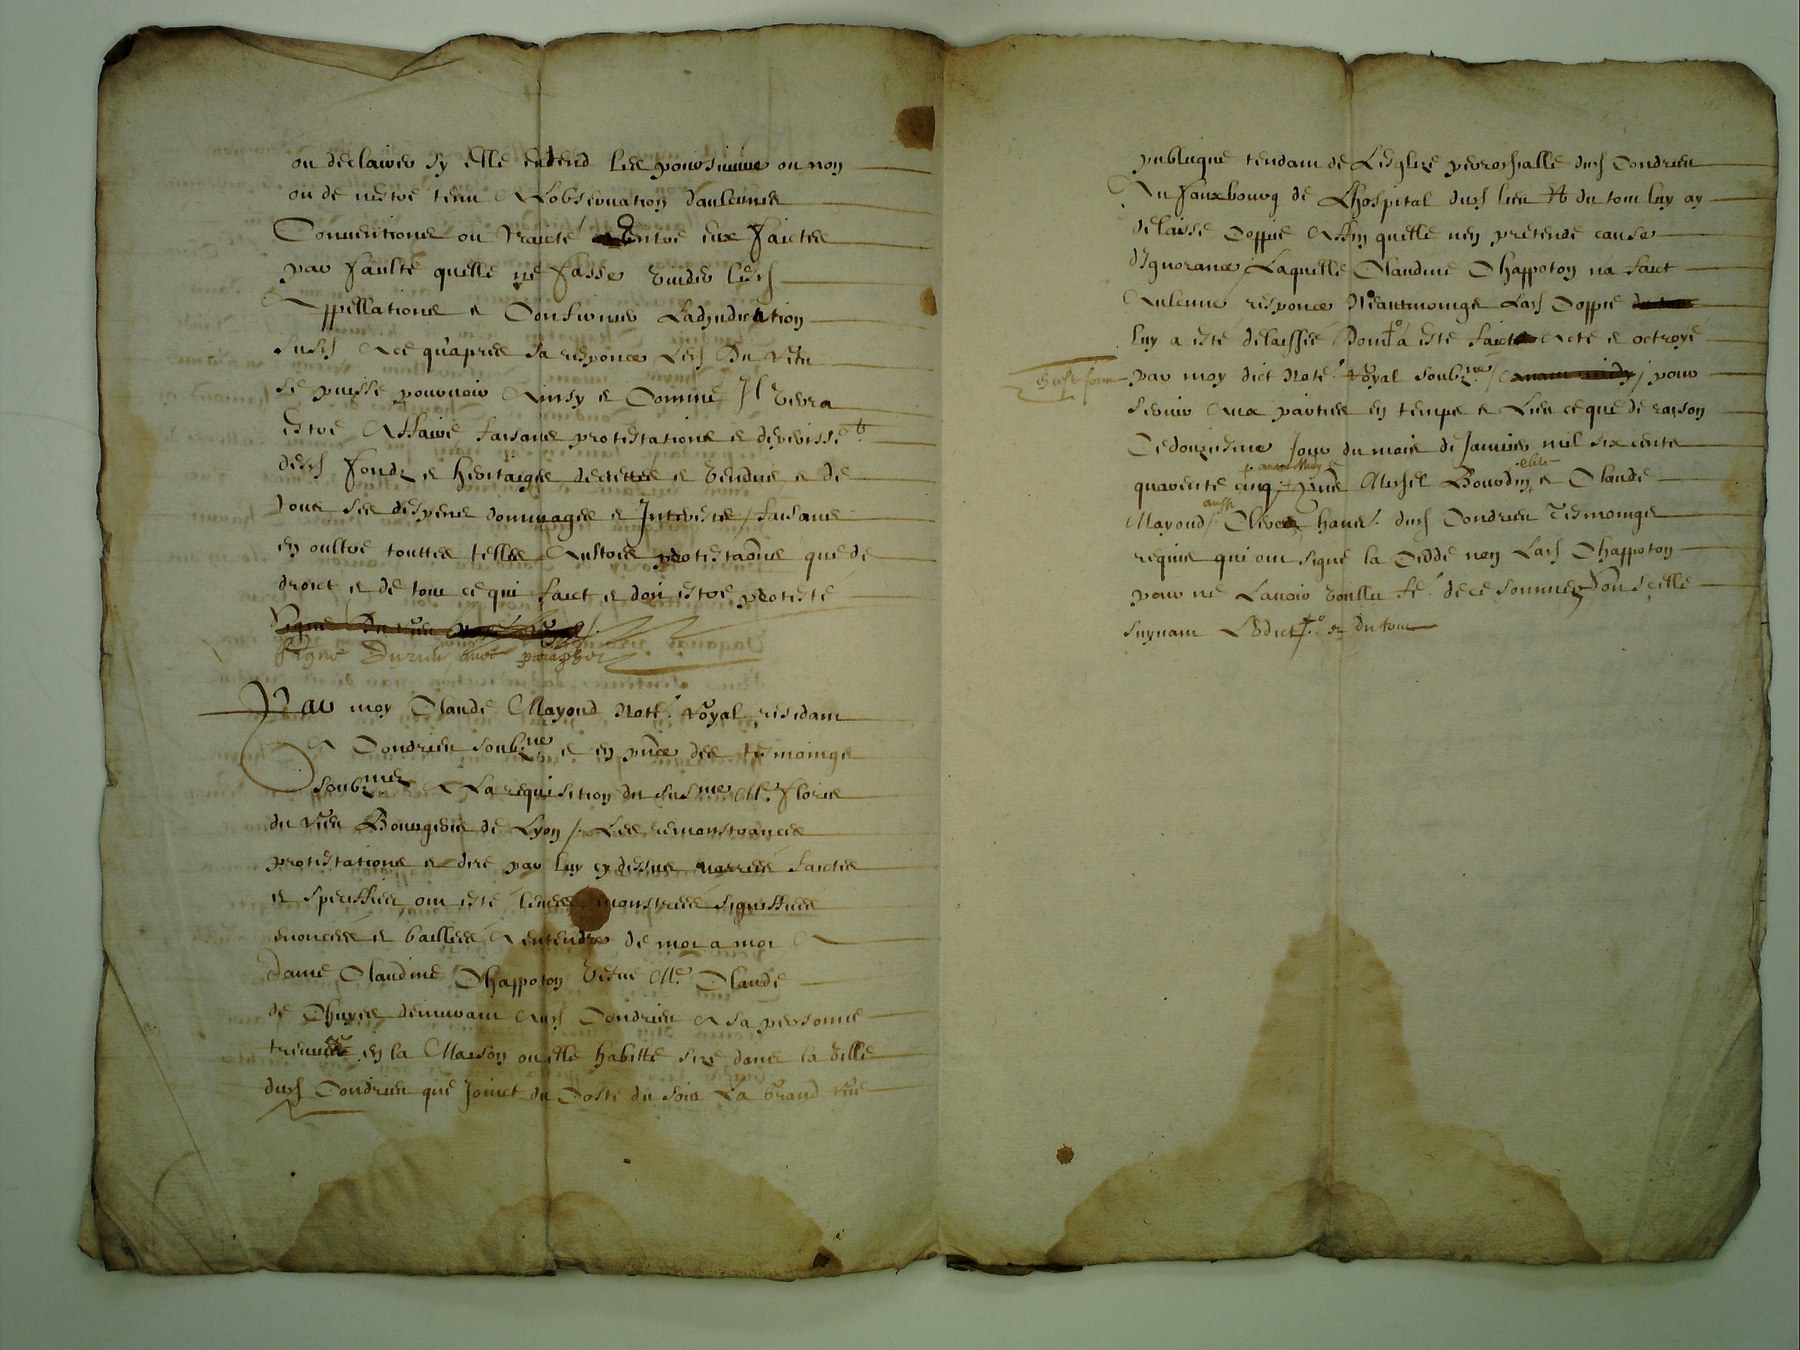 ou declairer sy elle entend les poursuivre ou non
ou de nestre tenu A Lobservation daulcunes
Conventions ou traicté entre eux faictes
par faulte quelle ne fasse vuider lesd
Appellations e Confirmer Ladjudication
susd Ace quapres sa responce Led Du rieu
se puisse pourvoir Ainsy e Comme Il verra
estre Affaire faisans protestations e
desd fondz e heritaiges decrettés e vendus e de
tous ses despens dommages e Interestz / faisans
en oultre touttes telles Aultres protestaõns que de
droict e de tout ce qui faict e doit estre protesté
Signé Du rieu
Signé Durieu avec paraphe
Par moy Claude Mayoud Notre. royal residant
A Condrieu soubzne e en pñce des temoings
soubznez A La requisition du susme Me. floris
du rieu Bourgeois de Lyon / Les remonstrances
protestations e dire par luy cy dessus narrées faictes
e speciffiées ont esté leues monstrées signiffiées
enoncées e baillées A entendre de mot a mot A
dame Claudine Chappoton vesve Me. Claude
de Chuyes demurant Aud Condrieu A sa personne
treuvée en la Maison ou elle habitte size dans la ville
dud Condrieu que Joinct du Costé du soir La Grand rue
publicque tendant de Lesglize perrochialle dud Condrieu
Au fauxbourg de Lhospital dud lieu Et du tout luy ay
delaissé Coppie Affin quelle nen pretende cause
dIgnorance / Laquelle Claudine Chappoton na faict
Aulcune responce Neantmoings Lad Coppie
luy a esté delaissée Dont a esté faict Acte e octroyé
par moy dict Notre. royal soubzne / pour
servir Aux parties en temps e Lieu ce que de raison
Ce douziesme Jour du mois de Janvier mil six centz
avant Midy
quarente cinq Michel Bourdin e Claude
aussy
Mayoud / Clercz hans. dud Condrieu tesmoings
requis qui ont signé la Cedde non Lad Chappoton
pour ne Lavoir voullu fe. de ce sommez
suyvant Ledict e du tout